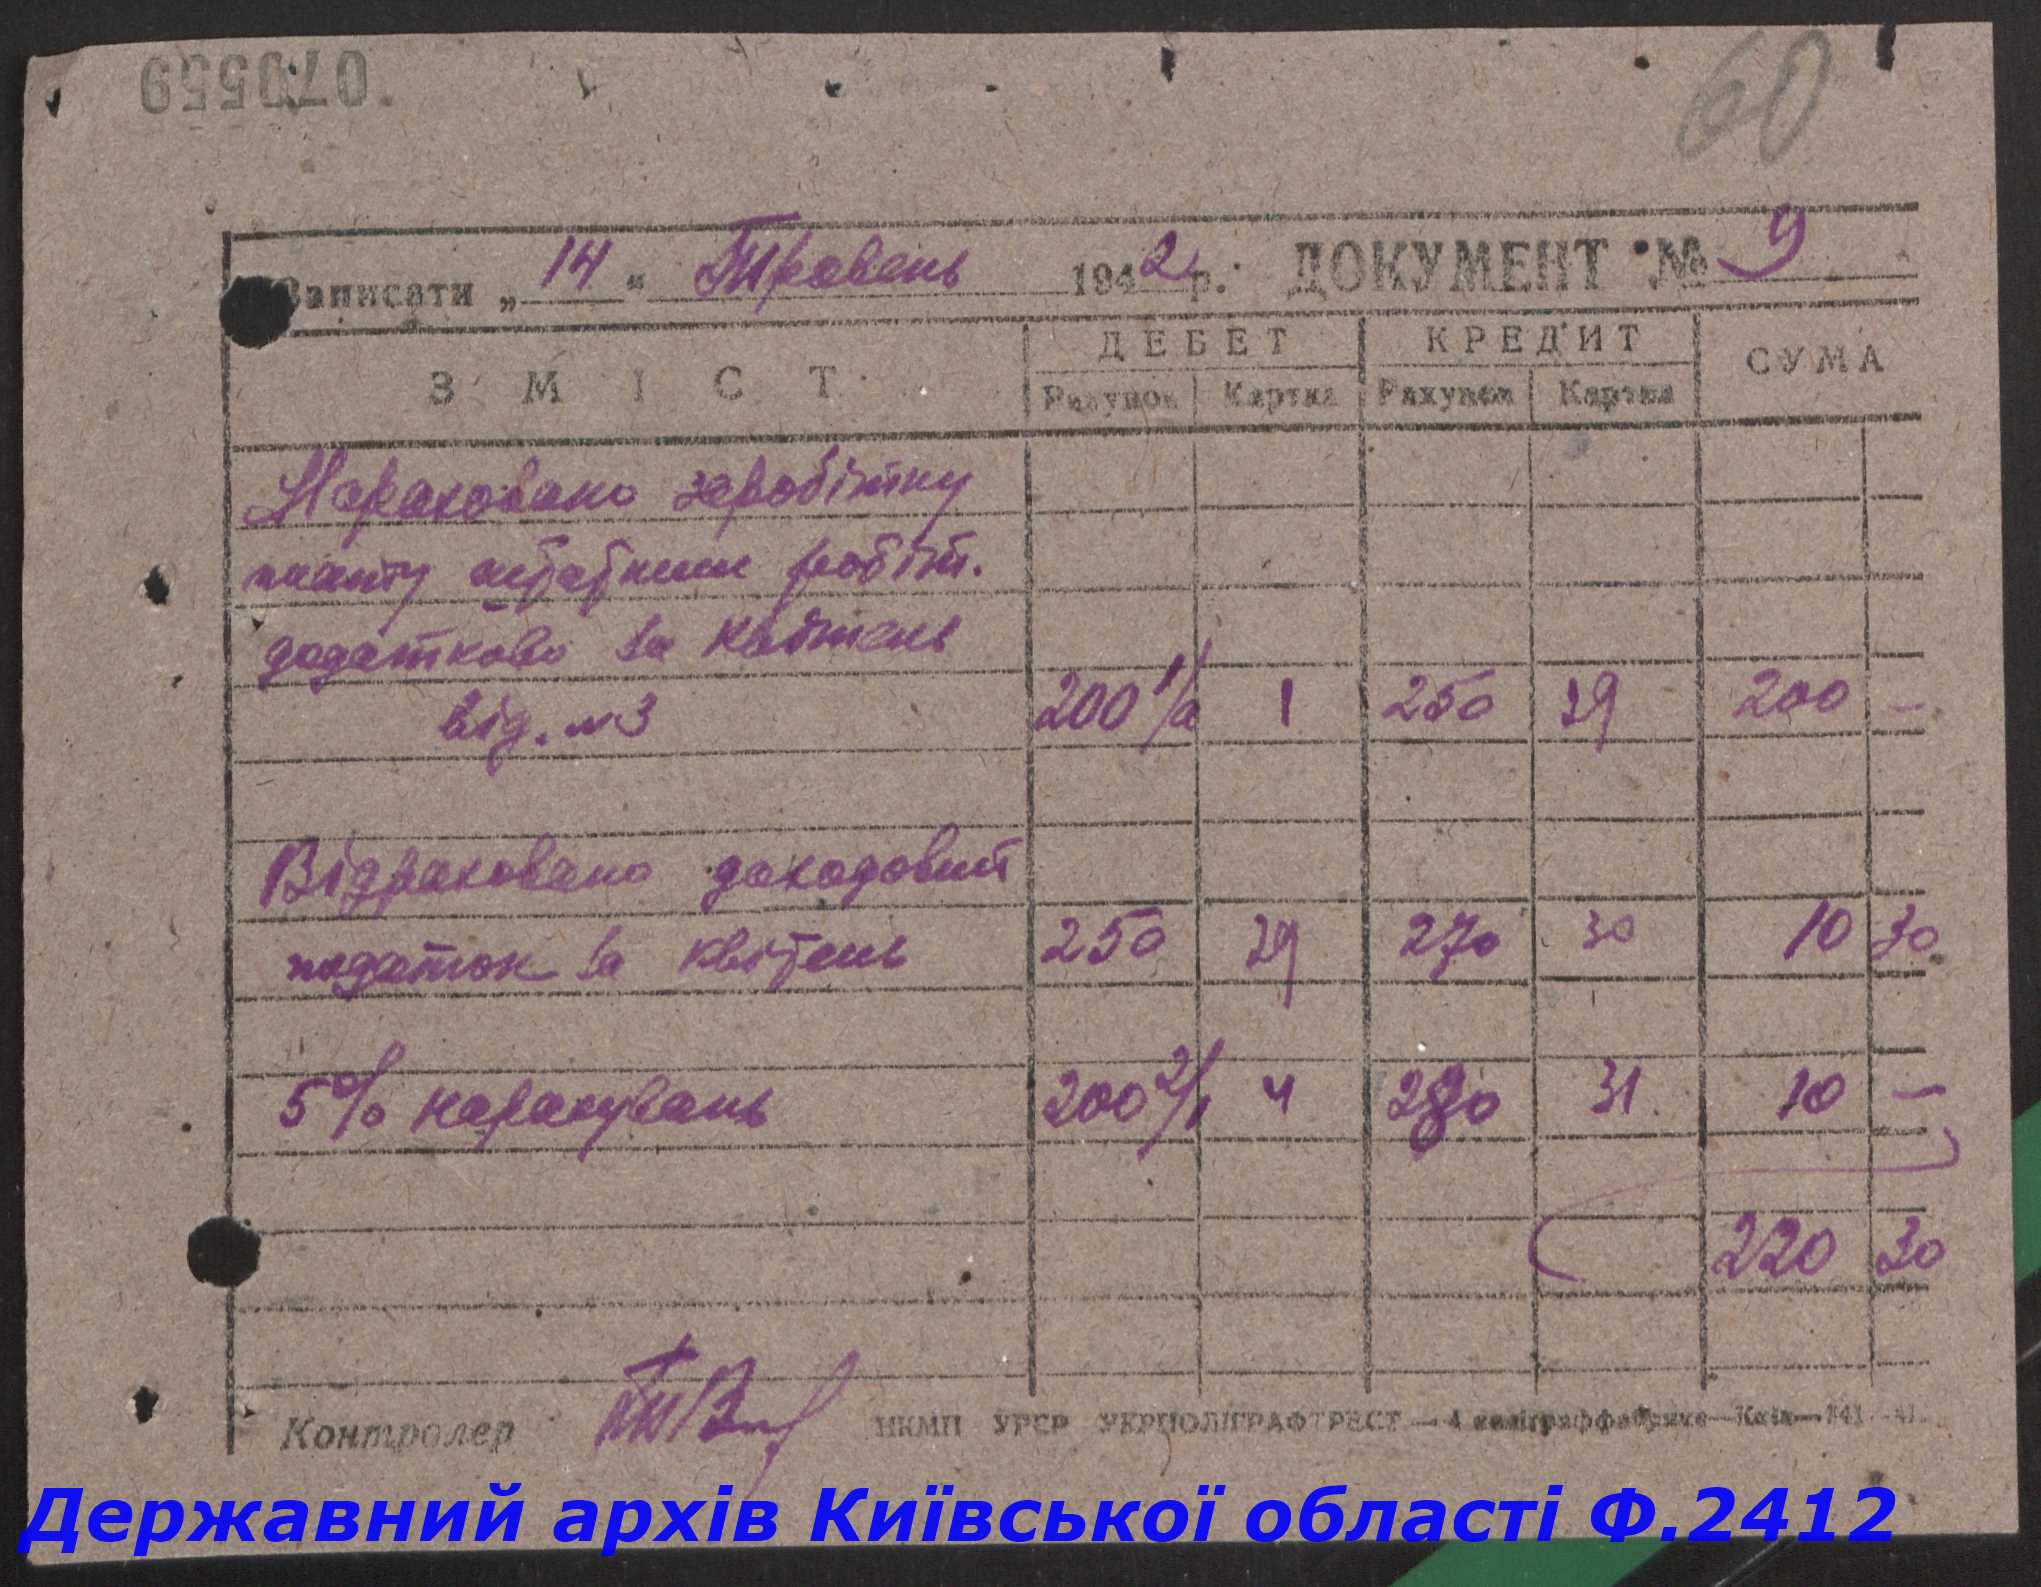 070559
60
Записати „ 14 “ Травень 1942 р. ДОКУМЕНТ № 9
ЗМІСТ ДЕБЕТ КРЕДИТ СУМА
Рахунок Картка Рахунок Картка
Нараховано заробітну
плату штатним робітн.
додатково за квітень
від. № 3 200 1/а 1 250 29 200 —
Відраховано доходовий
податок за квітень 250 29 270 30 10 30
5% нарахувань 200 2/1 4 280 31 10 —
220 30
Контролер НКМП УРСР УКРПОЛІГРАФТРЕСТ — 4 поліграффабрика — Київ — 241 — 41.
Державний архів Київської області Ф.2412